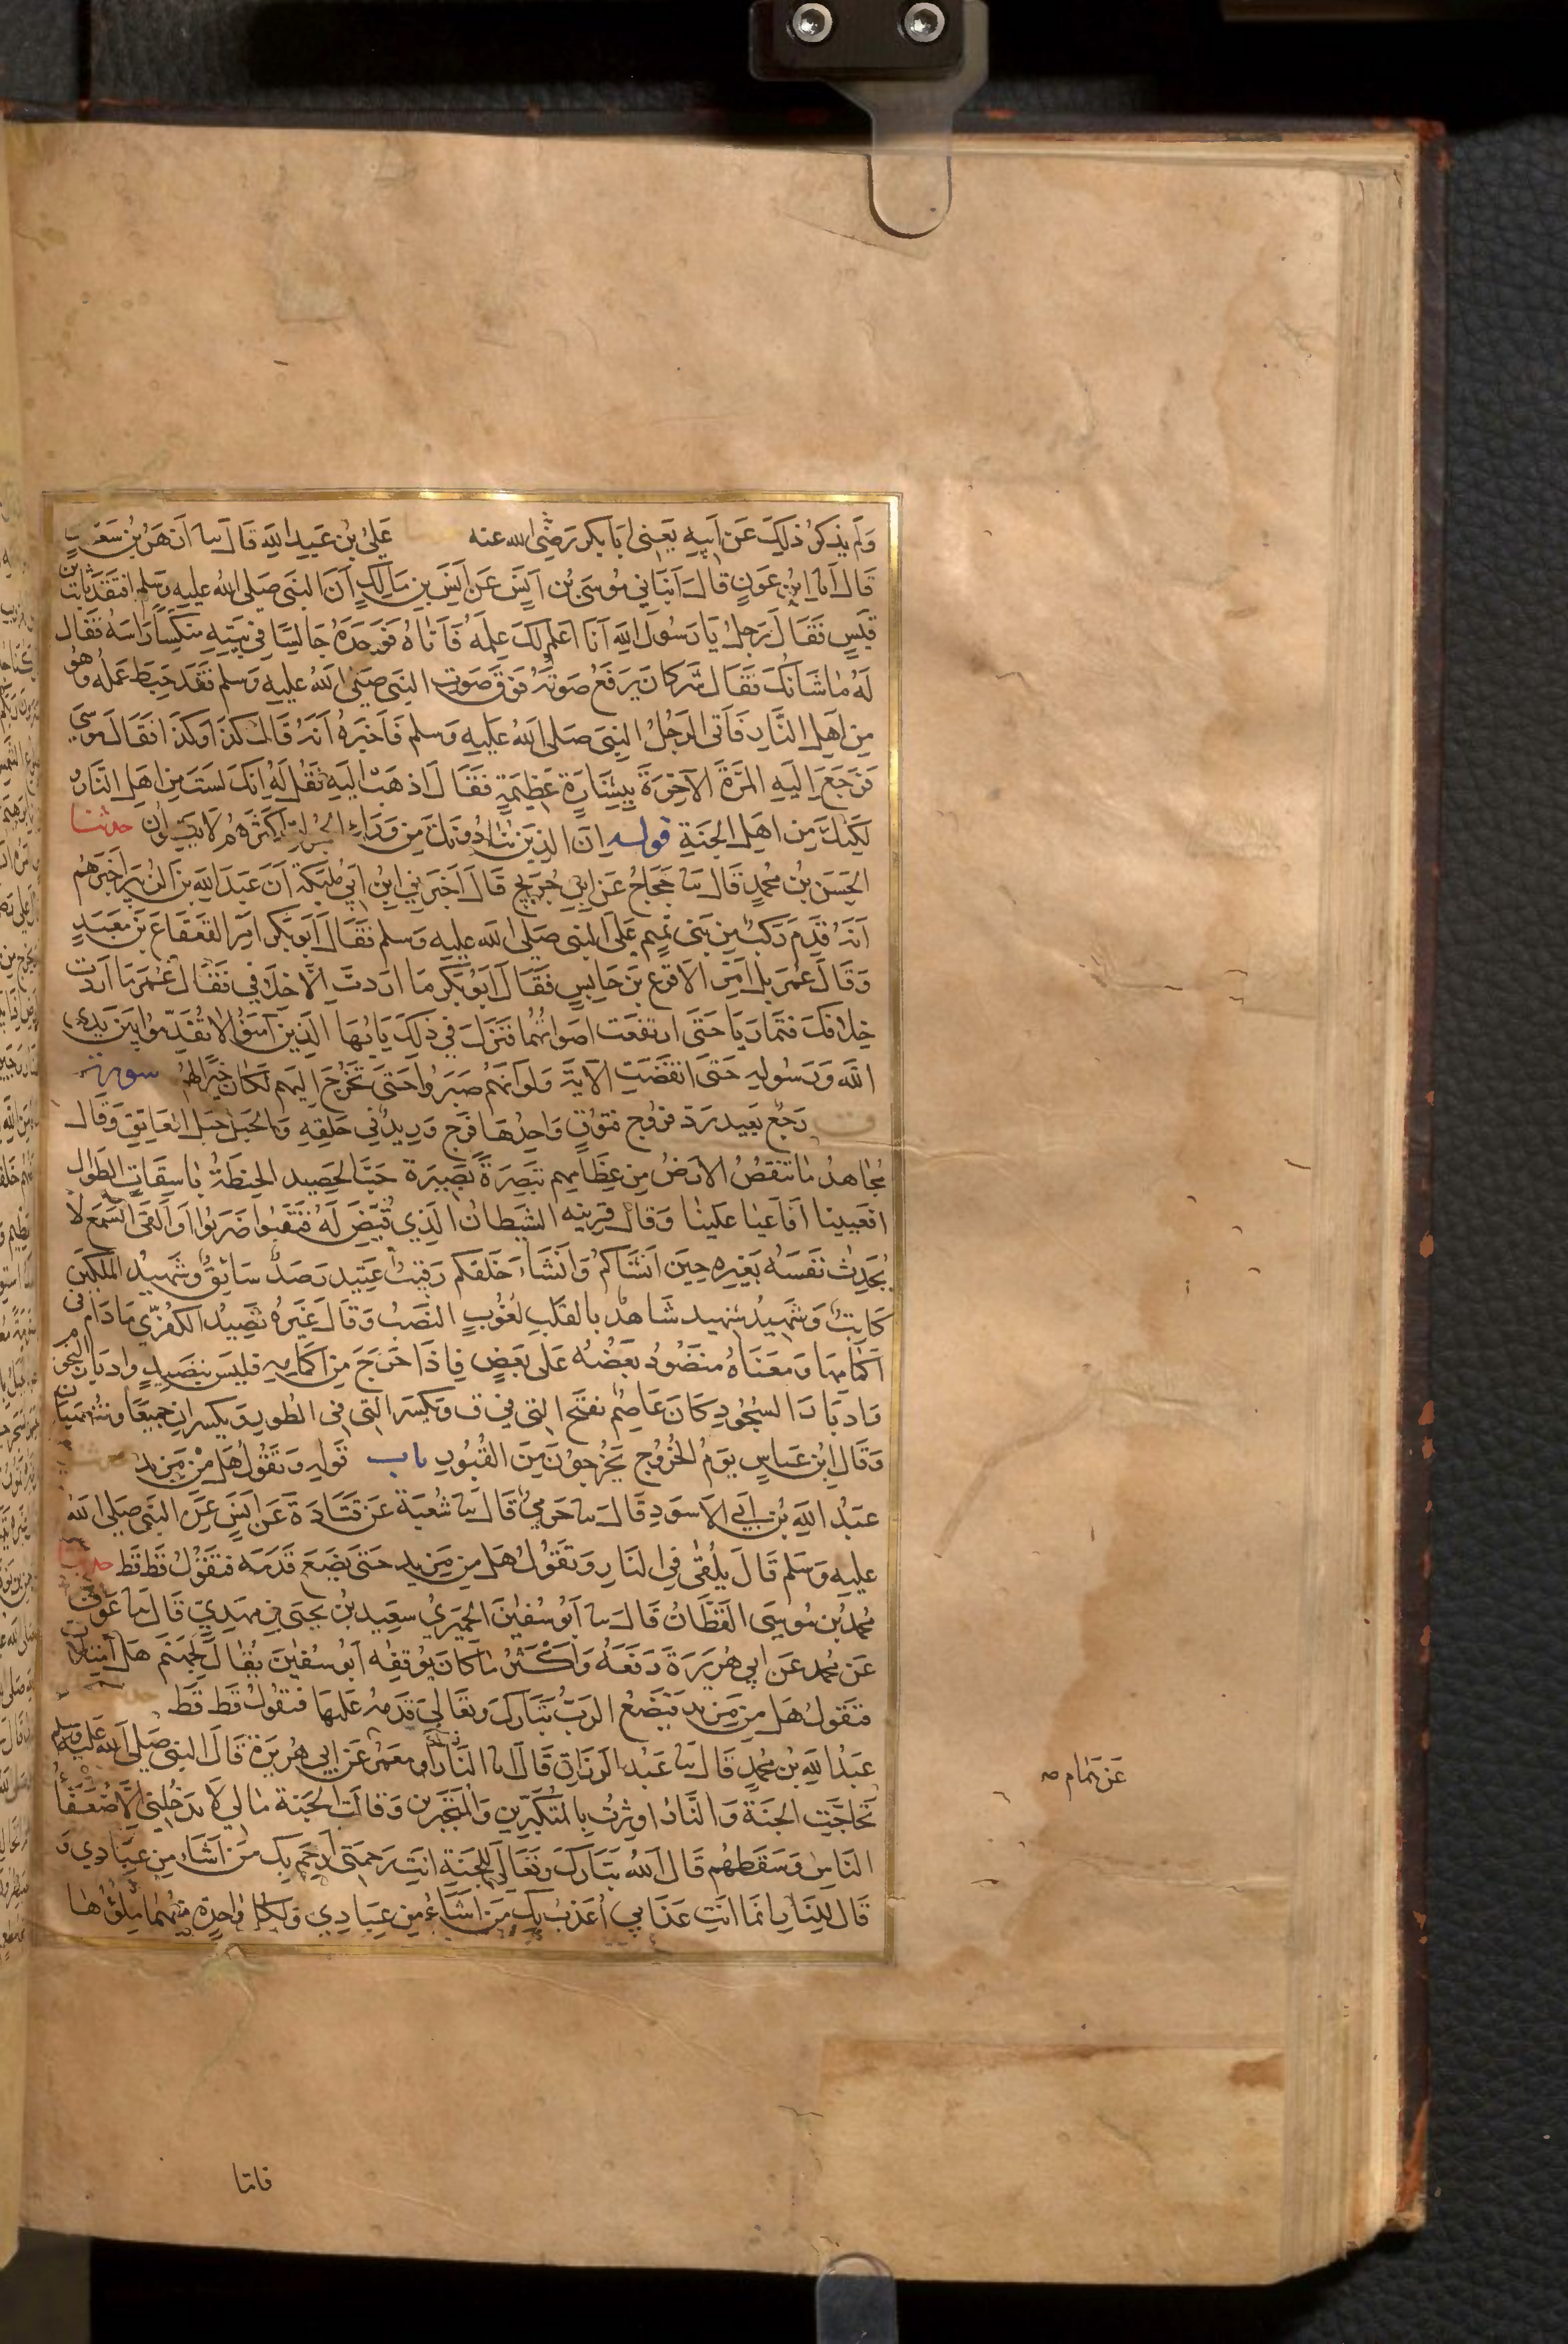 وَلَم يذكرُ ذلِكَ عَن اَبيهِ يَعني اَبا بكر رَضِيَ الله عنه عَليُ بنُ عَبدِ اللهِ قَالَ ثنا اَزهَرُ بنُ سَعدٍ
قَالَ انا ابنُ عَونٍ قالَ اَنبَاني مُوسَى بنُ اَنَسٍ عَن اَنَسِ بنِ مَالكٍ اَنَ النبَي صَلى اللهُ عليهِ وَسَلم افتقَدَ ثابتَ بن
قَيسٍ فَقَالَ رَجلُ يَا رَسُولَ اللهِ اَنَا اَعلَمُ لَكَ عِلمَهُ فَاَتَاهُ فَوَجَدَهُ جَالِسًا في بَيتِهِ مُنَكِسًا رَاسَهُ فَقَال
لَهُ مَا شَانُكَ فَقَال شَر كانَ يَرفَعُ صَوتَهُ فَوقَ صَوتِ النبَي صَلى اللهُ عليهِ وَسَلم فَقَد حَبِطَ عَمَلُه وَهُو
مِن اَهلِ النَّارِ فَاَتَى الرَجُلُ النبِيَ صَلى اللهُ عَليهِ وَسلم فَاَخبَرهُ اَنهُ قَالَ كَذَا وَكَذَا فَقَالَ مُوسَى
فَرَجَعَ اِليَهِ المَرَّةَ الآخِرَةَ بِبِشَارَةٍ عَظِيمَةٍ فَقَالَ اذهَب اِليَهِ فَقُل لَهُ اِنكَ لَستَ مِن اَهلِ النَّارِ و
لكنَكَ مِن اَهلِ الجَنَةِ قوله اِنَ الذِينَ يُنَادُونَكَ مِن وَرَاءِ الحُجُراتِ اَكثَرهُم لَا يَعقِلُون حدثنا
الحَسَن بنُ محُمدٍ قَالَ ثنا حَجَاجُ عَن ابنِ جُرَيجٍ قَالَ اَخبَرَني ابن اَبي مُلَيكَة اَنَ عَبدَ اللهِ بنَ الزُبَيرِ اَخبَرَهُم
اَنَهُ قَدِمَ رَكبُ مِن بَني تَمِيمٍ عَلَى النبَي صَلى الله عليهِ وَسلم فَقَالَ اَبو بَكر اَمِر القَعقَاعَ بنَ مَعبَدٍ
وَقَالَ عُمَر بَل اَمِرِ الاَقرَعَ بنَ حَابِسٍ فَقَالَ اَبُو بَكر مَا اَرَدتَ اِلَّا خِلَافي فَقَالَ عُمَر مَا اَرَدتُ
خِلَافَكَ فَتَمارَيَا حَتَى ارتفَعَت اَصوَاتُهُما فَنَزَلَ في ذلكَ يَا ايُهَا الذِينَ آمَنُوا لَا تُقَدِّمُوا بَينَ يَدَيِ
اللهِ وَرَسُولِهِ حَتَى انقَضَتِ الآيَة وَلَو انَهُم صَبَرُوا حَتى تَخرُجَ اِليهِم لَكَانَ خَيرًا لَهُم سورة
ق رَجعُ بَعِيد رَد فرُوج فتُوقٍ وَاحِدُهَا فَرج وَرِيدُ في حَلقِهِ وَالحَبل حَبل العَاتِقِ وَقَالَ
مُجاهدُ مَا تَنقُصُ الاَرضُ مِن عِظَامِهِم تَبصِرَةً بَصِيرَة حَبَّ الحَصِيدِ الحِنطَة بَاسِقَاتٍ الطّوَال
افَعَيِينَا اَفَاَعيَا عَلَينَا وَقالَ قَرِينُه الشيَطانُ الذِي قُيِّضَ لَهُ فَنَقَبُوا ضَرَبُوا اَو اَلقَى السَمعَ لَا
يُحَدِثُ نَفسَهُ بِغَيرِه حِينَ اَنشَاكُم وَاَنشَاَ خَلقَكُم رَقِيبُ عَتِيد رَصَدُ سَائِقُ وَشَهِيدُ المَلَكَين
كَاتِبُ وَشَهِيدُ شهِيد شَاهِدُ بالقَلبِ لُغُوبٍ النَصَب وَقَالَ غَيرُهُ نَضِيدُ الكُفُرَّي مَا دَام في
اَكمَامِهَا وَمَعنَاهُ مَنضُودُ بَعضُه عَلَى بَعضٍ فَاِذَا خَرَجَ مِن اَكمَامِهِ فَلَيسَ بِنَضِيدٍ وَادبَارَ النُجُومِ
وَادبَارَ السُجُودِ كَانَ عَاصِمُ يَفتَح التي في ق وَيَكسر التي في الطُور وَيكسرانِ جَميعًا وَيُنصَبَانِ
وَقَالَ ابنُ عَبَاسٍ يَومُ الخُرُوج يَخرُجونَ مِنَ القُبُورِ باب قَولِهِ وَتَقُولُ هَل مِن مَزِيدٍ
عَبدُ اللهِ بنُ اَبي الاَسوَدِ قَالَ ثنا حَرَميُ قَالَ ثنا شُعبَة عَن قَتَادَةَ عَن اَنَسٍ عَنِ النبَي صَلى اللهُ
عليهِ وَسَلم قَالَ يُلقَى في النَارِ وَتَقُولُ هَل مِن مَزِيدٍ حَتى يَضَعَ قَدَمَه فتَقُولُ قَط قَط حدثنا
محُمدُ بن مُوسَى القَطَّانُ قَالَ ثنا اَبُو سُفيَن الحِميَرِيُ سعِيد بنُ يَحيَى بنِ مَهدِيٍ قَالَ ثنا عَوفُ
عَن محُمدٍ عَن اَبي هُرَيرَةَ رَفَعَهُ وَاَكثَرُ مَا كَانَ يُوقِفُه اَبُو سُفيَن يُقالُ لِجَهَنَم هَلِ امتَلَاتِ
فتَقولُ هَل مِن مَزِيدٍ فَيَضَعُ الرَبُ تَبَارَكَ وَتعَالى قَدَمَهُ عَليهَا فتَقُولُ قَط قَط حدثنا
عَبدُ اللهِ بنُ محُمدٍ قَالَ ثنا عَبدُ الرَزاقِ قَالَ انا مَعمَرُ عَن اَبي هُرَيرَة قَالَ النبَي صَلى الله عَليهِ وَسلم
عَن هَمام صه
تَحَاجَّتِ الجَنَةُ وَالنَّارُ اوثِرتُ بِالمُتَكَبِرِينَ وَالمُتَجَبِرِين وَقَالَتِ الجَنَة مَا لي لَا يَدخُلُني اِلَّا ضُعَفَا
النَاسِ وَسَقَطُهُم قَالَ اللهُ تبَارَكَ وَتَعَالَى لِلجَنَةِ اَنتِ رَحمَتي اَرحَم بِكِ مَن اَشَاءُ مِن عِبَادِي وَ
قَالَ لِلنَارِ اِنمَا اَنتِ عَذَابي اُعَذِبُ بِكِ مَن اَشَاءُ مِن عِبَادِي وَلكُل وَاحِدَةٍ مِنهُمَا مِلؤُهَا
فامّا